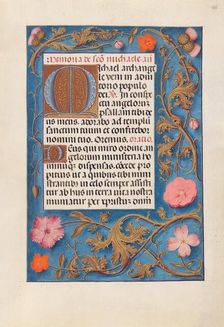 Memoria de scō michaele ar
Michael archange
le veni in adiu
torium populo
dei. In conspec
tu angelorum
psallam tibi de
us meus. Adorabo ad templum
sanctum tuum et confitebor
nomini tuo. Oremus. oratio.
Deus qui miro ordine an
gelorum ministeria ho
minumque dispensas
ut a quibus tibi mini
strantibus in celo semper assisti
tur ab his in terra vita nostra
muniatur per xpristum dnm